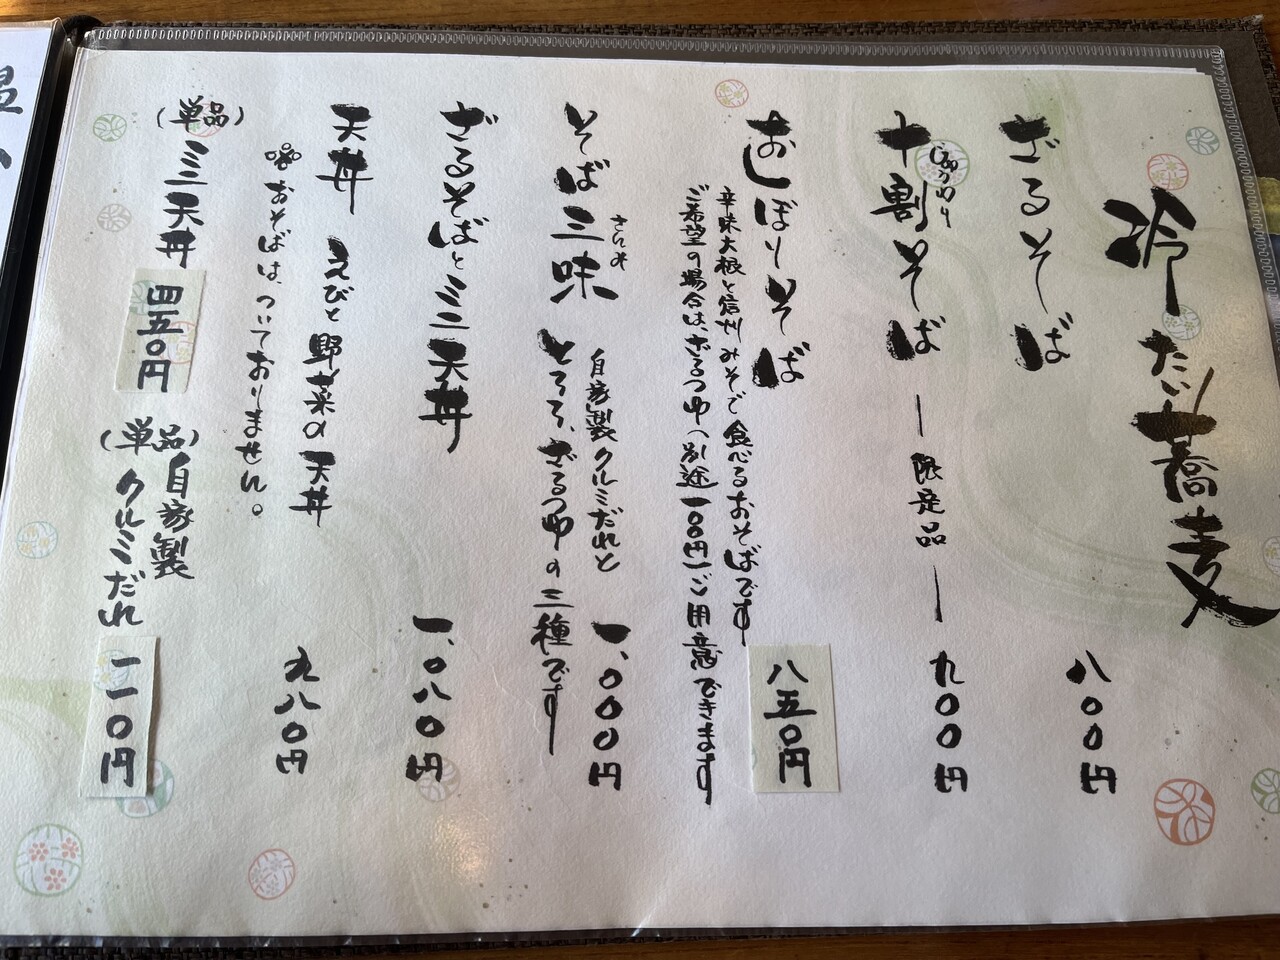 冷たい蕎麦
ざるそば 八〇〇円
十割そば ―限定品― 九〇〇円
じゅうわり
おしぼりそば 八五〇円
辛味大根と信州みそで食べるおそばです
ご希望の場合は、ざるつゆ(別途一〇〇円)ご用意できます
そば三味 一、〇〇〇円
さんみ
自家製クルミだれと
とろろ、ざるつゆの三種です
ざるそばとミニ天丼 一、〇八〇円
天丼 えびと野菜の天丼 九八〇円
おそばは、ついておりません。
(単品)ミニ天丼 四五〇円
(単品)自家製
クルミだれ 一一〇円